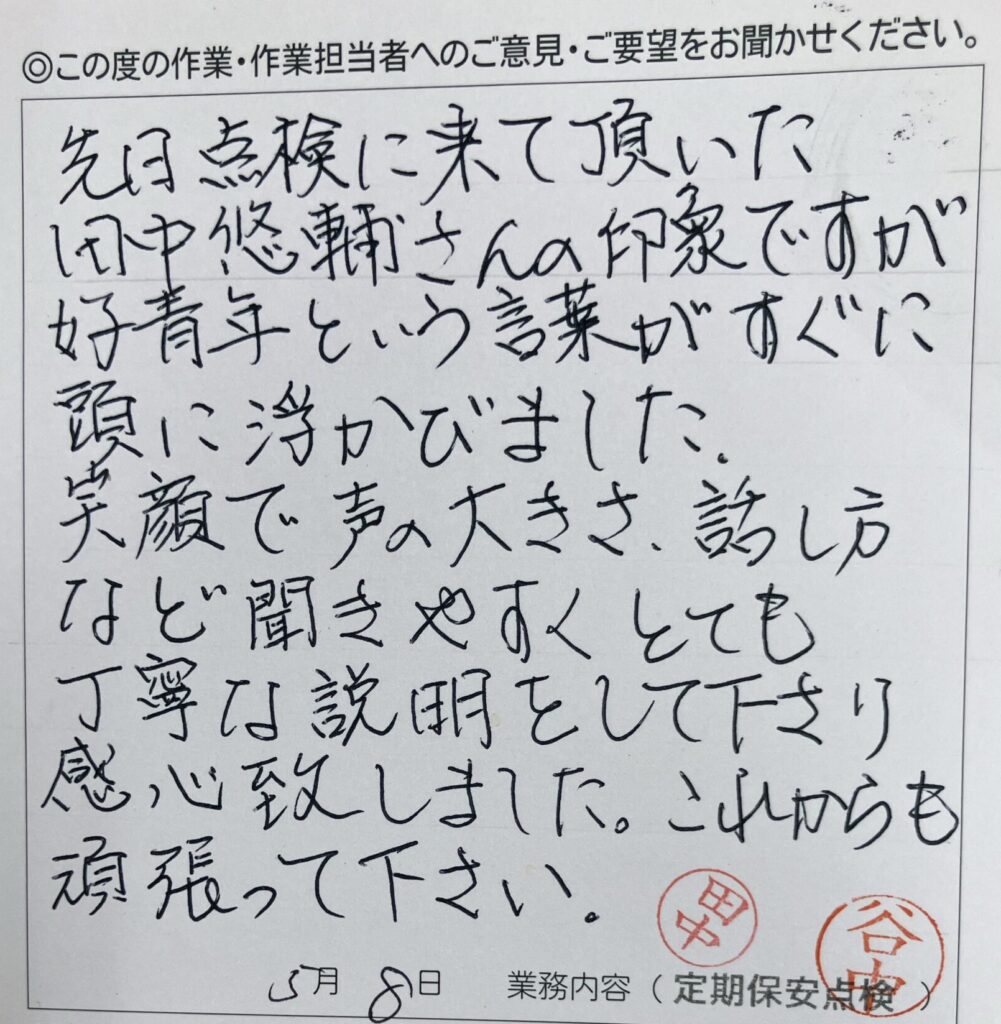 ◎この度の作業・作業担当者へのご意見・ご要望をお聞かせください。
先日点検に来て頂いた
田中悠輔さんの印象ですが
好青年という言葉がすぐに
頭に浮かびました.
笑顔で声の大きさ、話し方
など聞きやすくとても
丁寧な説明をして下さり
感心致しました。これからも
頑張って下さい。
田中
谷中
5月 8日 業務内容（定期保安点検）